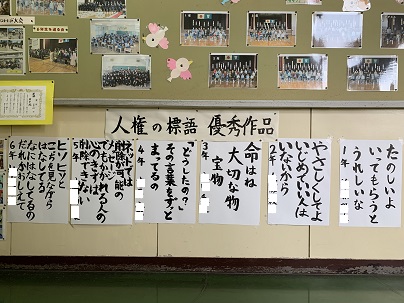 人権の標語 優秀作品
たのしいよ
いってもらうと
うれしいな
1年
やさしくしてよ
いじめていい人は
いないから
2年
命はね
大切な物
宝物
3年
「どうしたの?」
その言葉をずっと
まってるの
4年
ネットでは
削除が可能
心のきずは
削除できない
5年
ヒソヒソと
こっちを見ながら
はなしてる
なにはなしてるの
だれかおしえて
6年